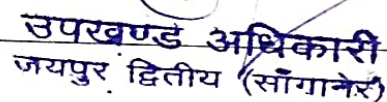 उपखण्ड अधिकारी
जयपुर द्वितीय (साँगानेर)